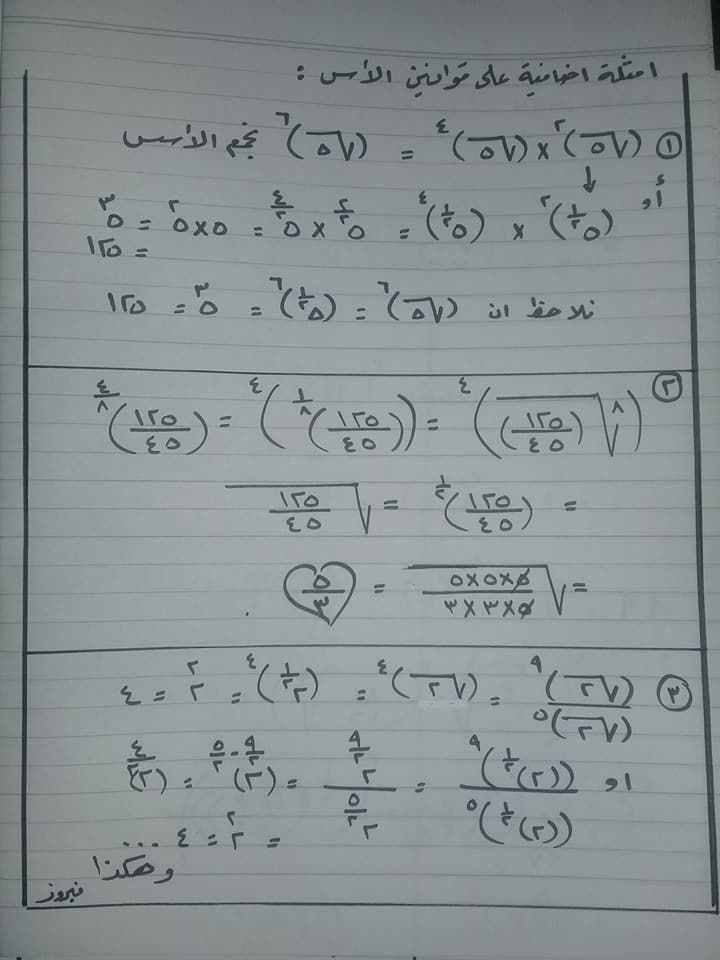 امثلة اضافية على قوانين الأسس :
① (√٥)^٢ × (√٥)^٤ = (√٥)^٦ نجمع الأسس
أو (٥^(١/٢))^٢ × (٥^(١/٢))^٤ = ٥^(٢/٢) × ٥^(٤/٢) = ٥×٥^٢ = ٥^٣
= ١٢٥
نلاحظ ان (√٥)^٦ = (٥^(١/٢))^٦ = ٥^٣ = ١٢٥
② (⁸√(١٢٥/٤٥))^٤ = ((١٢٥/٤٥)^(١/٨))^٤ = (١٢٥/٤٥)^(٤/٨)
= (١٢٥/٤٥)^(١/٢) = √(١٢٥/٤٥)
= √(٥×٥×٥/٣×٣×٥) = ٥/٣
③ (√٢)^٩/(√٢)^٥ = (√٢)^٤ = (٢^(١/٢))^٤ = ٢^٢ = ٤
او ((٢)^(١/٢))^٩/((٢)^(١/٢))^٥ = ٢^(٩/٢)/٢^(٥/٢) = (٢)^(٩/٢-٥/٢) = (٢)^(٤/٢)
= ٢^٢ = ٤ ...
وهكذا
فيروز